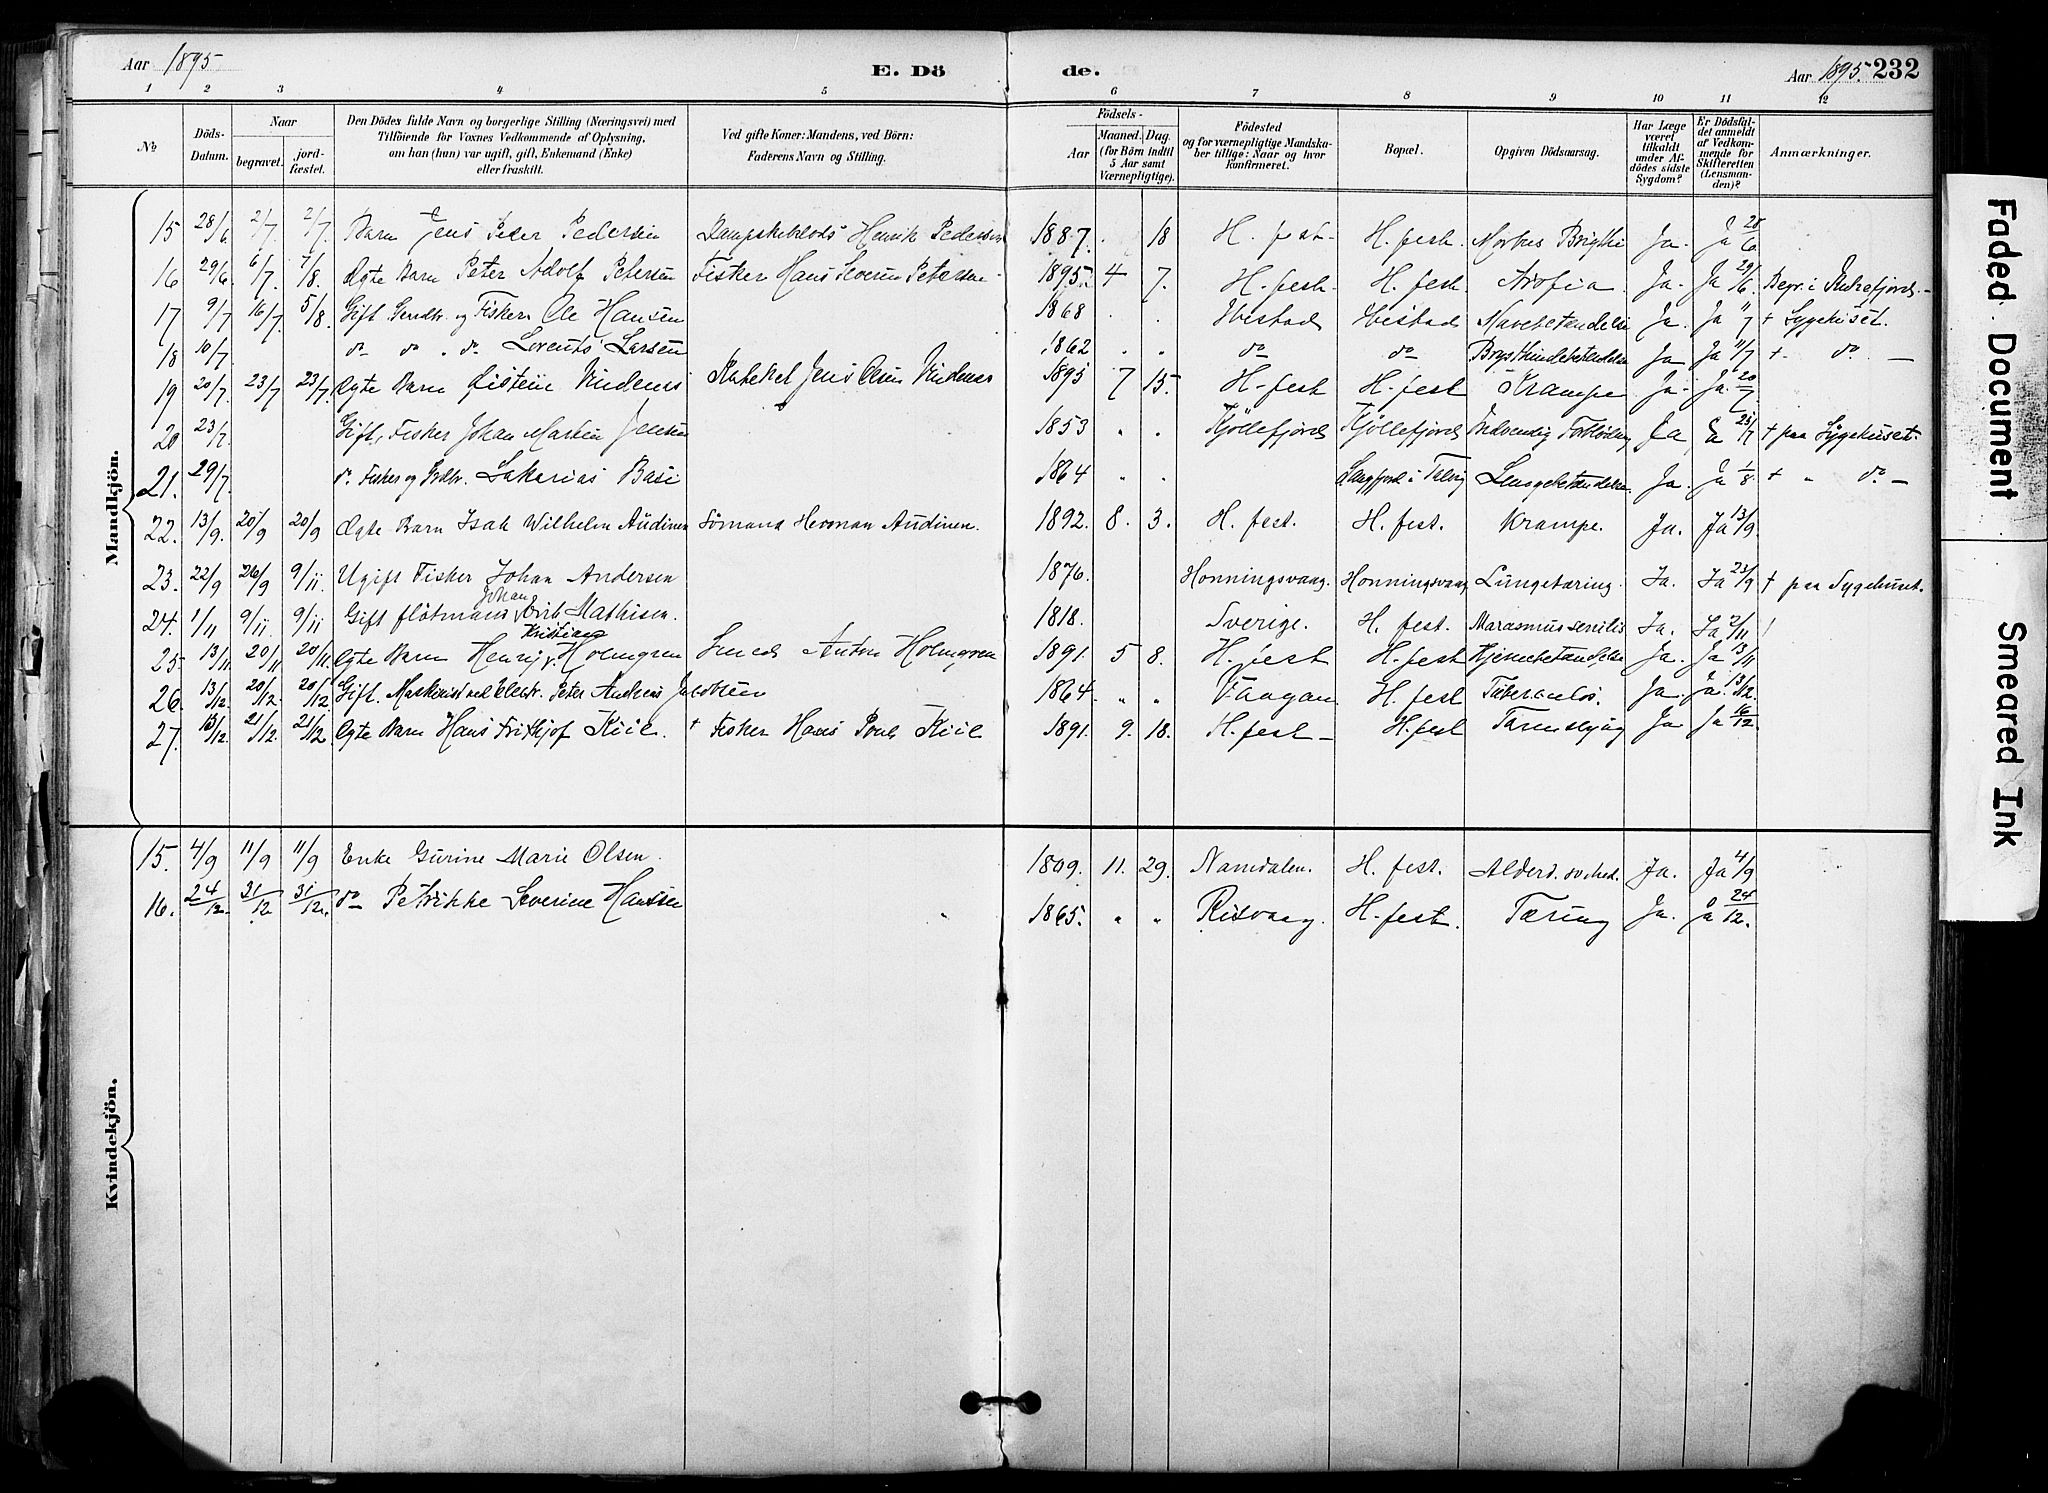 Aar 1895
E. Dö
de.
Aar 1895. 232
1 2 3 4 5 6 7 8 9 10 11 12
No
Döds-Datum.
Naar
begravet.
jord-fæstet.
Den Dödes fulde Navn og borgerlige Stilling (Næringsvei) med
Tilföiende for Voxnes Vedkommende af Oplysning,
om han (hun) var ugift, gift, Enkemand (Enke)
eller fraskilt.
Ved gifte Koner: Mandens, ved Börn:
Faderens Navn og Stilling.
Födsels-
Aar
Maaned. Dag.
(for Börn indtil
5 Aar samt
Værnepligtige).
Födested
og for værnepligtige Mandska-
ber tillige: Naar og hvor
konfirmeret.
Bopæl.
Opgiven Dödsaarsag.
Har Læge
været
tilkaldt
under Af-
dödes sidste
Sygdom?
Er Dödsfal-
det anmeldt
af Vedkom-
mende for
Skifteretten
(Lensman-
den)?
Anmærkninger.
Mandkjön.
15 28/6 2/7 2/7 Barn Jens Peter Pedersen Henrik Pedersen 1887. . 18 H. fest. H. fest. Ja. Ja 28/6
16 29/6 6/7 7/8 Ægte Barn Peter Adolf Petersen Fisker Hans Severin Petersen 1895 4 7. H. fest. H. fest. Atrofia Ja. Ja 29/6 Begr. i
17 9/7 16/7 5/8 Gift Gaardbr. og Fisker Ole Hansen 1868 . . Ibestad Ibestad Mavebetændelse Ja. Ja 11/7 + Sygehuset.
18 10/7 do do . do Lorents Larsen 1862 " " do do Brysthindebetændelse Ja Ja 11/7 + do —
19 20/7 23/7 23/7 Ægte Barn Øistein Vindenes Kateket Jens Olsen Vindenes 1895 7 15. H-fest H-fest Krampe Ja. Ja. 20/7
20 23/7 Gift, Fisker Johan Martin Jensen 1853 " " Kjöllefjord Kjöllefjord Indvendig Forblödning Ja Ja 23/7 + paa Sygehuset.
21. 29/7. do Fisker og Grdbr. Sakarias Basi 1864 " " Langfjord i Talvig Lungebetændelse Ja. Ja 1/8 + " do —
22. 13/9. 20/9 20/9 Ægte Barn Isak Wilhelm Audinen Sömand Herman Audinen. 1892. 8. 3. H. fest. H. fest. Krampe. Ja. Ja 13/9.
23. 22/9 26/9 9/11 Ugift Fisker Johan Andersen 1876. Honningsvaag. Honningsvaag Lungetæring. Ja. Ja 23/9 + paa Sygehuset.
Johan
24. 1/11 9/11 9/11 Gift flötmand Erik Mathisen. 1818. Sverige. H. fest. Marasmus senilis Ja. Ja 2/11
Kristian
25. 13/11 20/11 20/11. Ægte Barn Henrig Holmgren Smed Anton Holmgren 1891. 5 8. H. fest H. fest Hjernebetændelse Ja. Ja 13/11
26. 13/12. 20/12. 20/12. Gift. Maskinist ved Elektr. Peter Andreas Jakobsen 1864. " " Vaagan H. fest Tuberculos. Ja. Ja. 13/12.
27. 13/12. 21/12. 21/12 Ægte Barn Hans Frithjof Kiil. + Fisker Hans Poul Kiil 1891. 9. 18. H. fest — H. fest Ja Ja 16/12.
Kvindekjön.
15. 4/9 11/9 11/9 Enke Gurine Marie Olsen. 1809. 11. 29. Namdalen. H. fest. Alderd.svaghed. Ja. Ja 4/9
16. 24/12. 31/12 31/12. do Petrikke Severine Hansen 1865. " " Risvaag. H. fest. Tæring Ja. Ja 24/12.
Faded Document
Smeared Ink